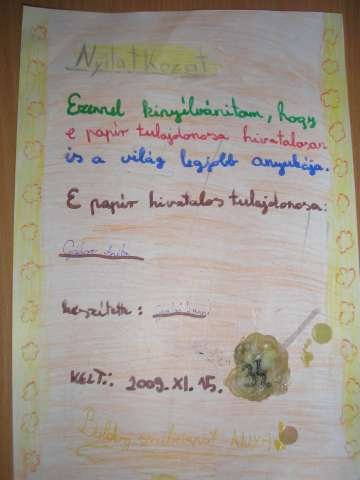 Nyilatkozat
Ezennel kinyilvánítom, hogy
e papír tulajdonosa hivatalosan
is a világ legjobb anyukája.
E papír hivatalos tulajdonosa:
készítette:
KELT.: 2009. XI. 15.
Boldog